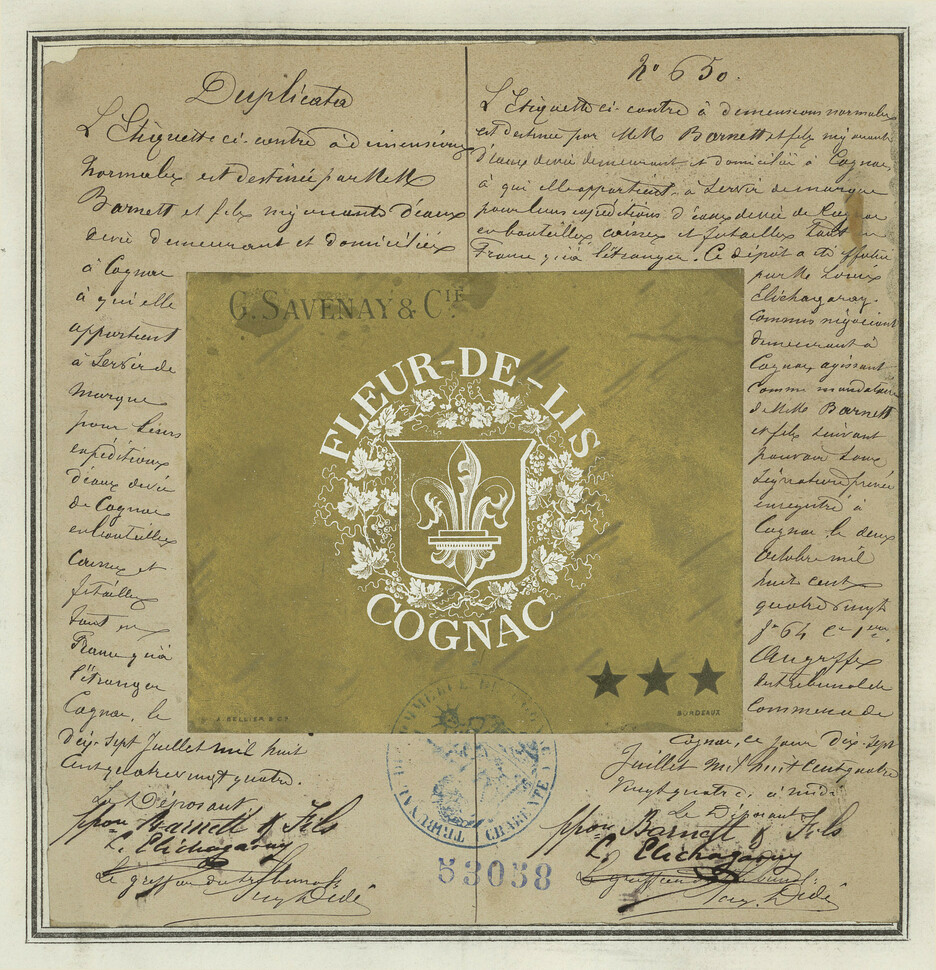 Duplicata
L'Etiquette ci-contre à dimensions
Normales est destinée par MM
Barnett et fils négociants d'eaux
devie demeurant et domiciliés
à Cognac
à qui elle
appartient
à Servir de
marque
pour leurs
expéditions
d'eaux devie
de Cognac
en bouteilles
Caisses et
futailles
tant en
France qu'à
l'étranger
Cognac, le
Dix-Sept Juillet mil huit
Cent quatre vingt quatre.
Le Déposant
ppon Barnett & Fils
L. Elichagaray
Le greffier du tribunal
No 650.
L'Etiquette ci-contre à dimensions normales
est destinée par MM Barnett et fils négociants
d'eaux devie demeurant et domiciliés à Cognac
à qui elle appartient, à Servir de marque
pour leurs expéditions d'eaux devie de Cognac
en bouteilles caisses et futailles tant en
France qu'à l'étranger. Ce dépôt a été effectué
par Mr Louis
Elichagaray.
Commis négociant
demeurant à
Cognac agissant
comme mandataire
de MM Barnett
et fils suivant
pouvoir sous
Signature privée
enregistré à
Cognac le deux
Octobre mil
huit cent
quatre vingt
fo 64 Ce 1ere
Au greffe
du tribunal de
Commerce de
Cognac, ce jour Dix-Sept
Juillet Mil huit Cent quatre
Vingt quatre. à midi
Le Déposant
ppon Barnett & Fils
L. Elichagaray
Le greffier du tribunal
G. SAVENAY & CIE
FLEUR-DE-LIS
COGNAC
★ ★ ★
J. BELLIER & Cie
BORDEAUX
TRIBUNAL DE COMMERCE DE COGNAC
CHARENTE
53058